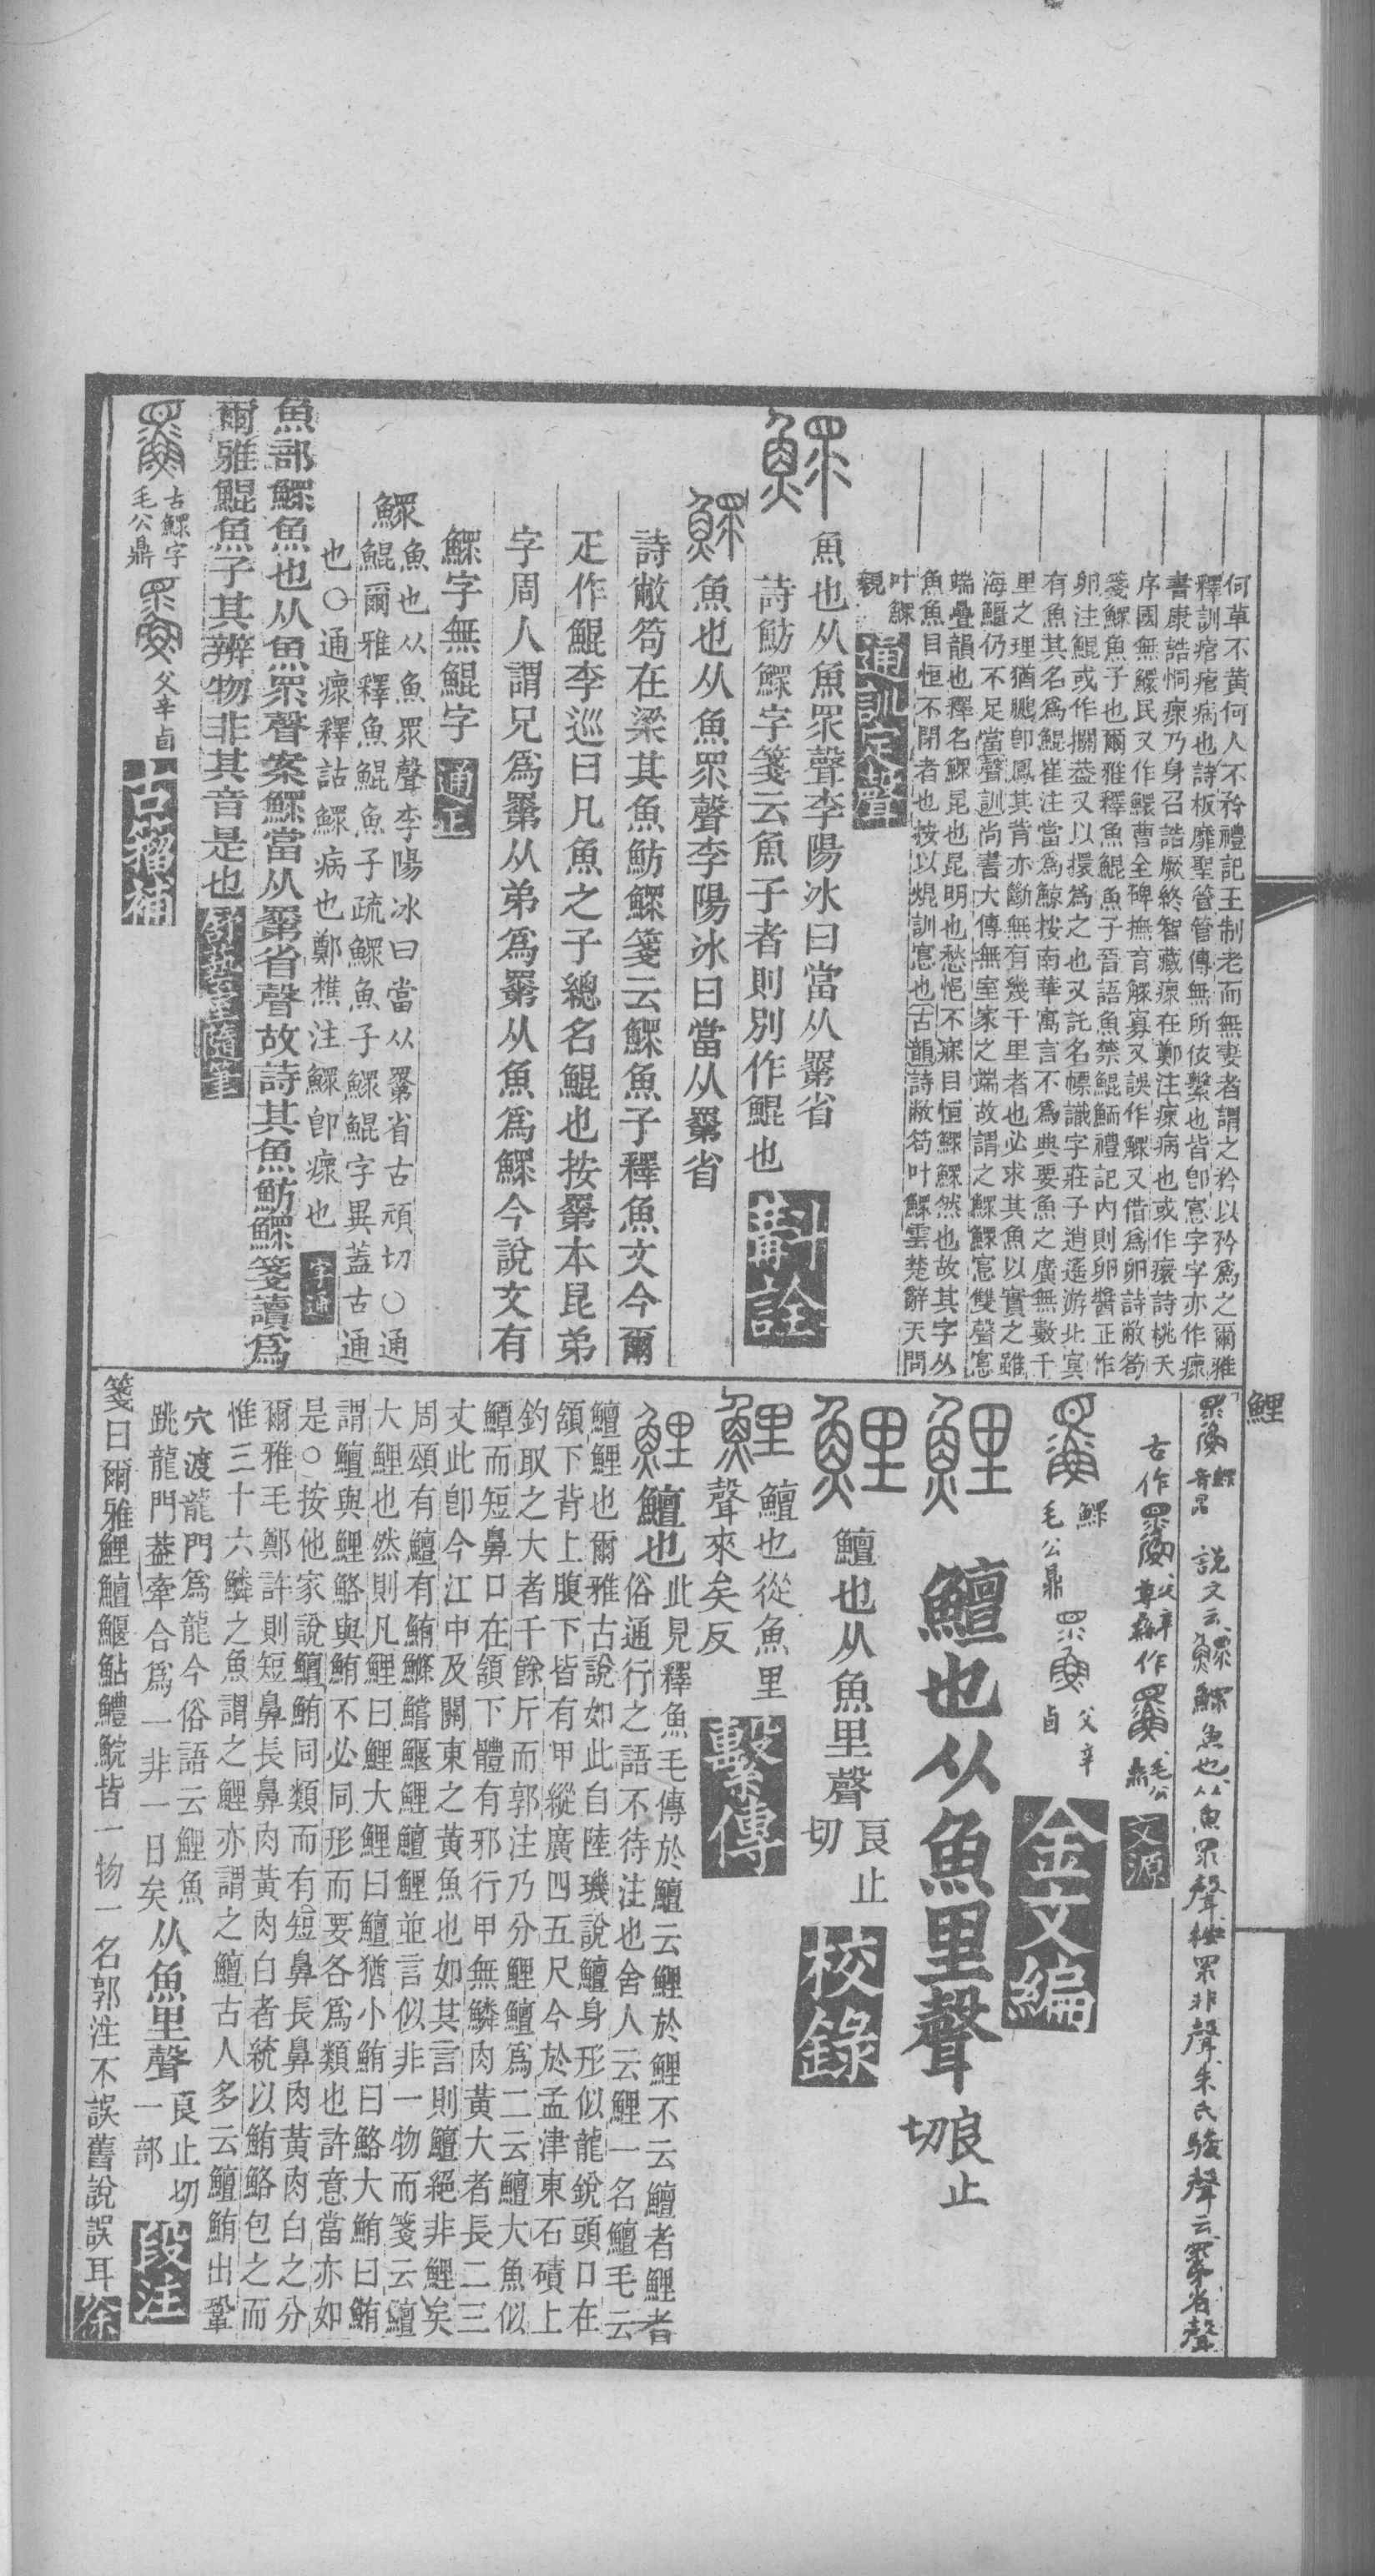 何草不黃何人不矜禮記王制老而無妻者謂之矜以矜爲之爾雅
釋訓痯痯病也詩板靡聖管管傳無所依繫也皆卽悹字字亦作瘝
書康誥恫瘝乃身召誥厥終智藏瘝在鄭注瘝病也或作癏詩桃夭
序國無鰥民又作鱞曹全碑撫育鰥寡又誤作鰥又借爲卵詩敝笱
箋鰥魚子也爾雅釋魚鯤魚子晉語魚禁鯤鮞禮記內則卵醬正作
卵注鯤或作攔葢又以擐爲之也又託名幖識字莊子逍遙游北冥
有魚其名爲鯤崔注當爲鯨按南華寓言不爲典要魚之廣無數千
里之理猶鵬卽鳳其背亦斷無有幾千里者也必求其魚以實之雖
海鱷仍不足當聲訓尚書大傳無室家之端故謂之鰥鰥悹雙聲悹
端疊韻也釋名鰥昆也昆明也愁悒不寐目恒鰥鰥然也故其字从
魚魚目恒不閉者也按以焜訓悹也古韻詩敝笱叶鰥雲楚辭天問
叶鰥
親 通訓定聲
鰥 魚也从魚眔聲李陽冰曰當从翼省
詩魴鰥字箋云魚子者則別作鯤也 斠詮
鰥 魚也从魚眔聲李陽冰曰當从翼省
詩敝笱在梁其魚魴鰥箋云鰥魚子釋魚文今爾
疋作鯤李巡曰凡魚之子總名鯤也按𥊽本昆弟
字周人謂兄爲𥊽从弟爲𥊽从魚爲鰥今說文有
鰥字無鯤字 通正
鰥魚也从魚眔聲李陽冰曰當从𥊽省古頑切○通
鯤爾雅釋魚鯤魚子疏鰥魚子鰥鯤字異蓋古通
也○通瘝釋詁鰥病也鄭樵注鰥卽瘝也 字通
魚部鰥魚也从魚眔聲案鰥當从𥊽省聲故詩其魚魴鰥箋讀爲
爾雅鯤魚子其辨物非其音是也
古鰥字
毛公鼎
父辛卣 古籀補
鯉
鰥
音昆 說文云鰥魚也从魚眔聲按眔非聲朱氏駿聲云𥊽省聲
古作 父辛尊 作 毛公鼎 文源
鰥
毛公鼎
父辛
卣 金文編
鯉 鱣也从魚里聲 良止切
鯉 鱣也从魚里聲 良止切 校錄
鯉 鱣也從魚里
聲來矣反 繫傳
鯉 鱣也 此見釋魚毛傳於鱣云鯉於鯉不云鱣者鯉者
俗通行之語不待注也舍人云鯉一名鱣毛云
鱣鯉也爾雅古說如此自陸璣說鱣身形似龍銳頭口在
頷下背上腹下皆有甲縱廣四五尺今於孟津東石磧上
釣取之大者千餘斤而郭注乃分鯉鱣爲二云鱣大魚似
鱏而短鼻口在頷下體有邪行甲無鱗肉黃大者長二三
丈此卽今江中及關東之黃魚也如其言則鱣絕非鯉矣
周頌有鱣有鮪鰷鱨鰋鯉鱣鯉並言似非一物而箋云鱣
大鯉也然則凡鯉曰鯉大鯉曰鱣猶小鮪曰鮥大鮪曰鮪
謂鱣與鯉鮥與鮪不必同形而要各爲類也許意當亦如
是○按他家說鱣鮪同類而有短鼻長鼻肉黃肉白之分
爾雅毛鄭許則短鼻長鼻肉黃肉白者統以鮪鮥包之而
惟三十六鱗之魚謂之鯉亦謂之鱣古人多云鱣鮪出鞏
穴渡龍門爲龍今俗語云鯉魚
跳龍門葢牽合爲一非一日矣 从魚里聲 良止切
一部 段注
箋曰爾雅鯉鱣鰋鮎鱧鯇皆一物一名郭注不誤舊說誤耳 徐